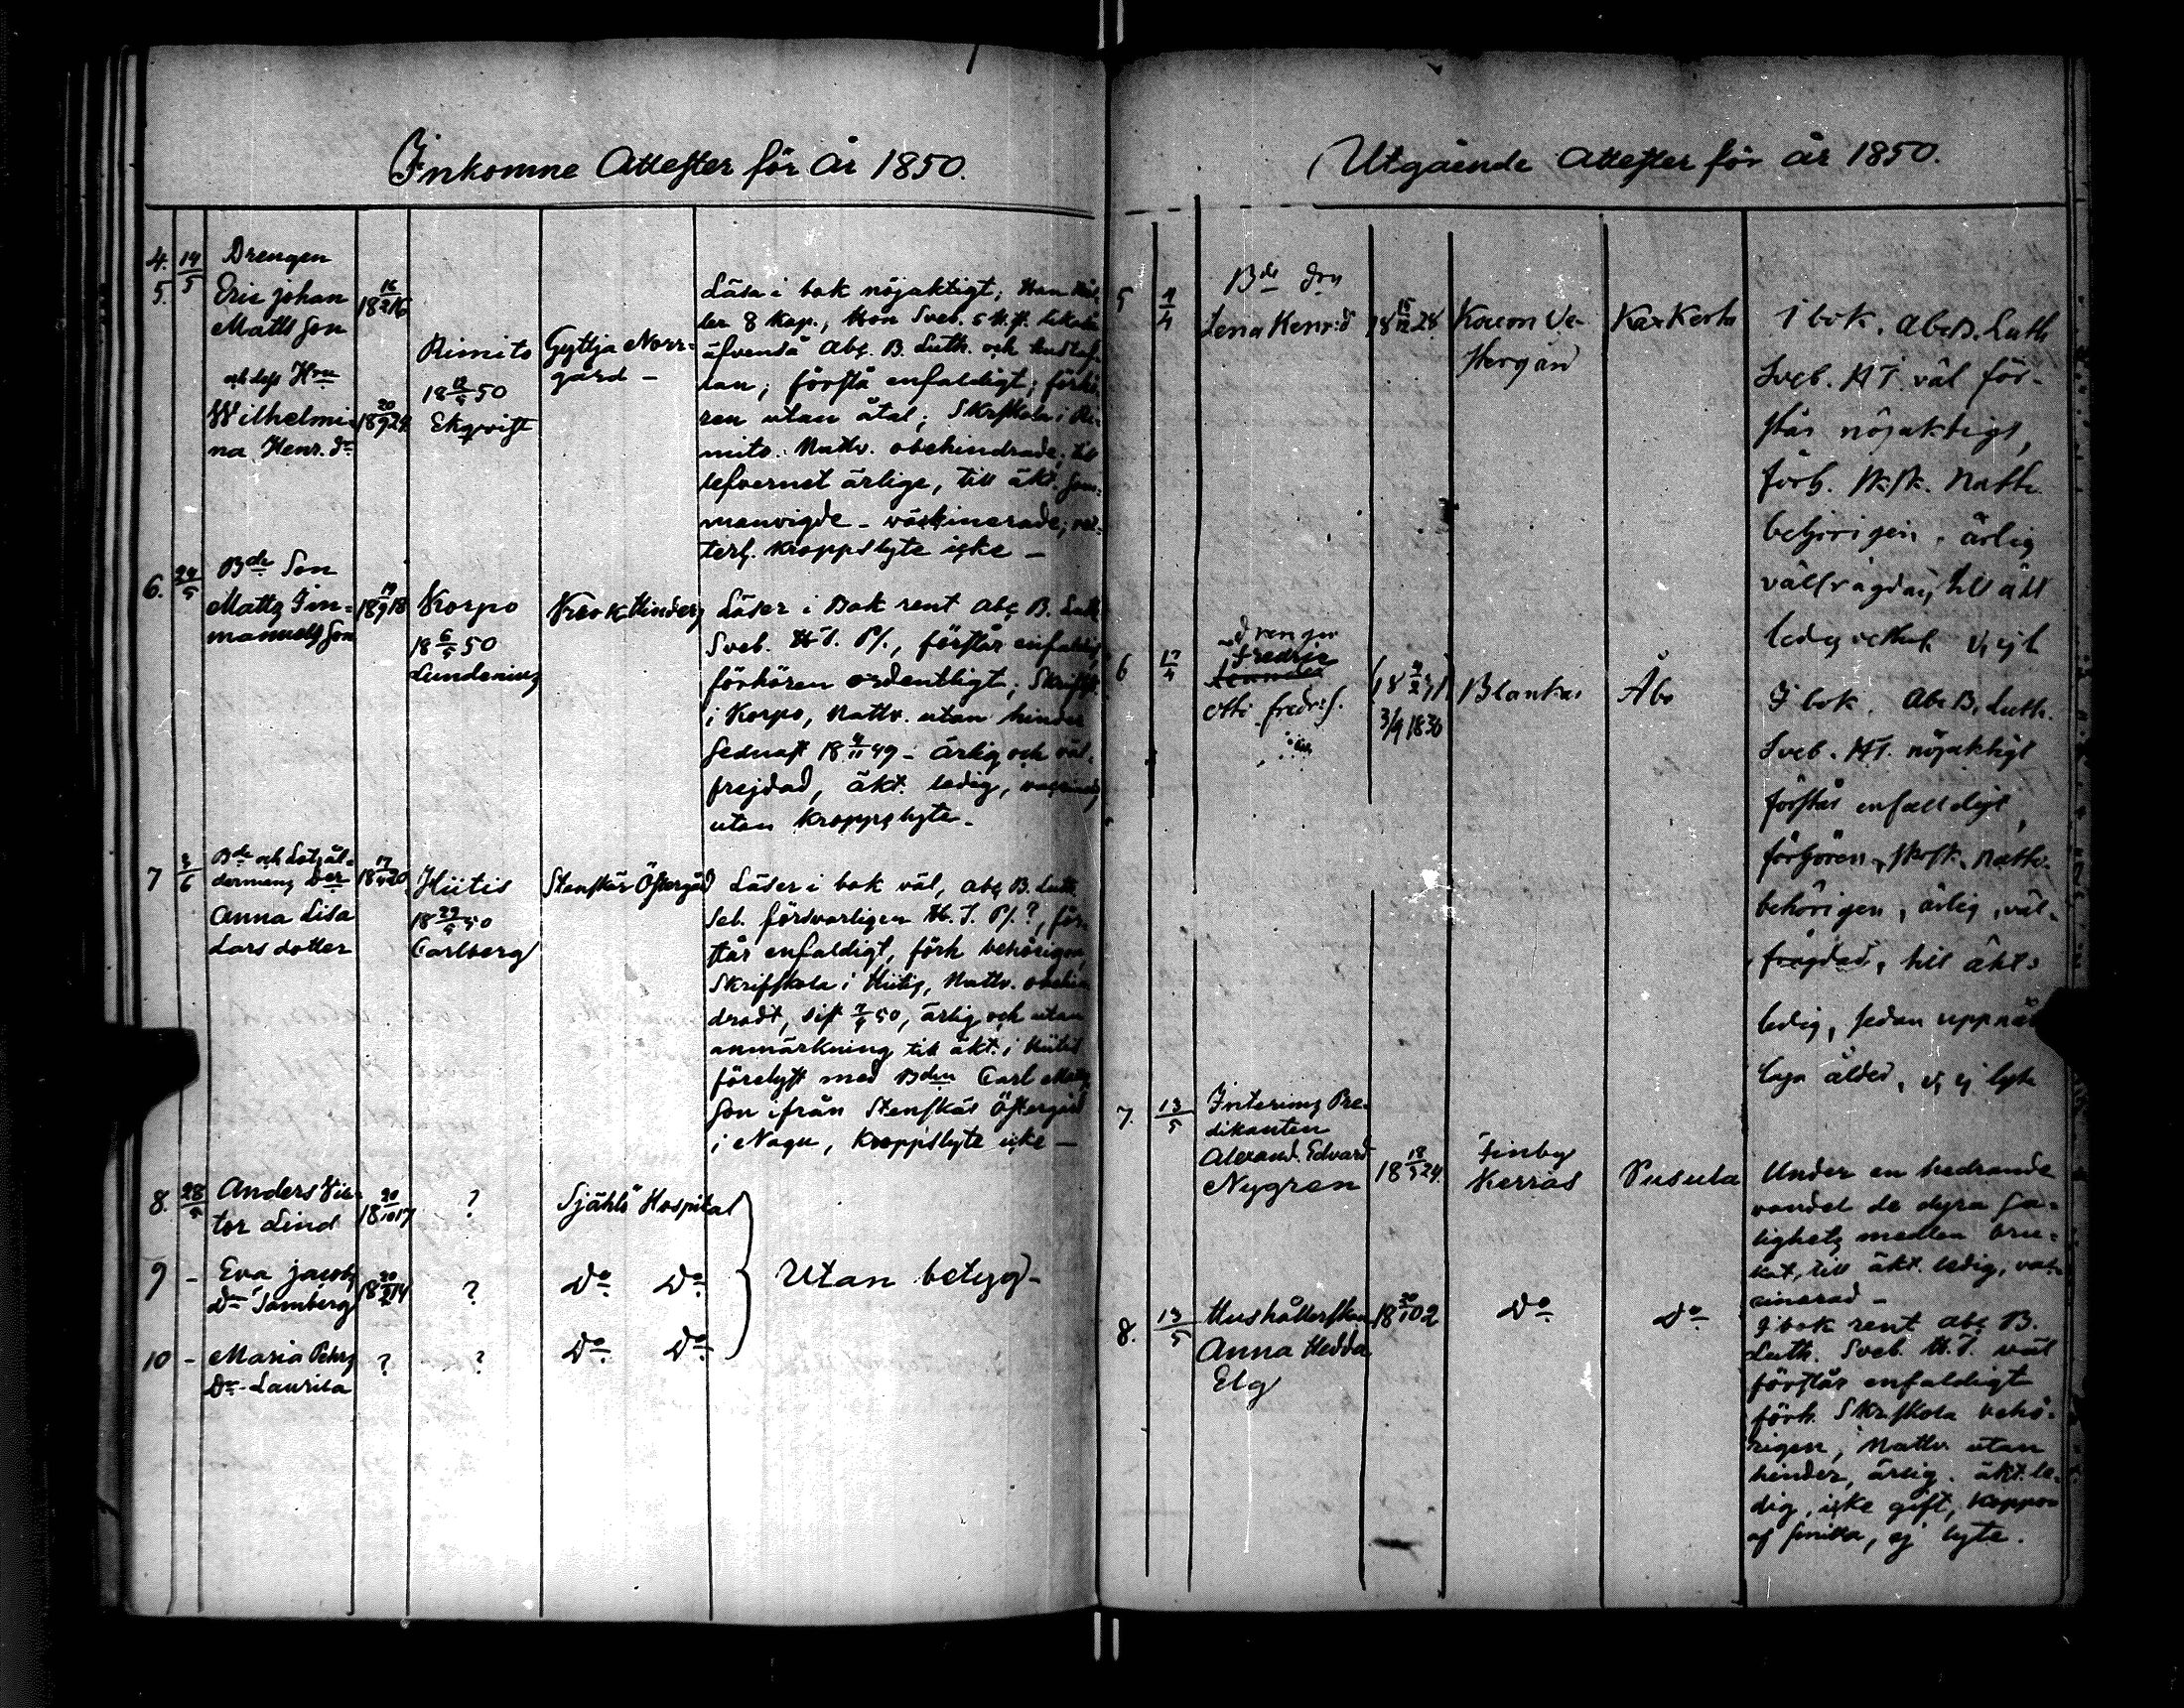 Inkomne Attester för År 1850.
4. 14/5 Drengen
5. Eric Johan 18 16/2 16
Mattsson
och dess Hru
Wilhelmi- 18 20/9 24
na Henr. dr
Rimito
18 12/5 50
Ekqvist
Gyttja Norr-
gård -
Läsa i bok nöjaktigt; Han
ler 8 Kap., Hon Sveb.
äfvenså Abc. B. Luth. och hustaf-
lan; förstå enfaldigt; förhö-
ren utan åtal; Skrskola i Ri-
mito. Nattv. obehindrade, till
lefvernet ärlige, till äkt. sam-
manvigde - vaccinerade; 
kroppslyte icke -
6. 24/5 Bde Son
Matts Im- 18 19/9 18
manuelsson
Korpo
18 6/5 50
Lundenius
Läser i Bok rent Abc B. Luth.
Sveb. H. T. Ps., förstår enfaldigt
förhören ordentligt; Skrifsk.
i Korpo, Nattv. utan hinder
sednast 18 4/11 49 - ärlig och väl-
frejdad, äkt. ledig, vaccinerad,
utan kroppslyte.
7 4/6 Bde och Lotsål-
dermans Der 18 17/4 20
Anna Lisa
Larsdotter
Hiitis
18 29/5 50
Carlberg
Stenskär Östergård
Läser i bok väl, abc B. Luth.
Seb. försvarligen H. T. Ps.?, för-
står enfaldigt, förh behörigen,
Skrifskola i Hiitis, Nattv. obehin-
dradt, sist 50, ärlig och utan
anmärkning till äkt. i Hiitis
förelyst med Bden Carl Matts
son ifrån Stenskär Östergård
i Nagu, kroppslyte icke -
8. 28/5 Anders Vic- 18 20/10 17 ? Själö Hospital
tor Lind
9 - Eva Jacobs 18 20/2 14 ? Do Do Utan betyg -
Dr Tamberg
10 - Maria Pehrs ? ? Do Do
Dr Laurila
Utgående Attester för år 1850.
5 4/4 Bde Drn
Lena Henr:d 18 15/12 28
Kaxkerta
I bok. Abc B. Luth
Sveb. HT. väl för-
står nöjaktigt,
förh. sk.sk. Nattv.
behörigen, ärlig
välfrägdad, till äkt
ledig
6 17/4 Drengen
Fredric
Otto Fredr:s. 3/9 1830
Blankas
Åbo
I bok. Abc B. Luth.
Sveb. HT. nöjaktigt
förstår enfaldigt,
förhören, skrsk. Nattv.
behörigen, ärlig, väl-
frägdad, till äkt:
ledig, sedan uppnåd
laga ålder, ej lyte
7. 13/5 Interims Pre-
dikanten
Alexand. Edvard
Nygren 18 18/3 24.
Finby
Kerras
Pusula
Under en hedrande
vandel de dyra Sa-
lighets medlen bru-
kat, till äkt. ledig, vac-
cinerad -
8. 13/5 Hushållerskan 18 20/10 02 Do Do
Anna Hedda
Elg
I bok rent abc B.
Luth. Sveb. H. T. väl
förstår enfaldigt
förh. Skr.skola behö-
rigen, Nattv. utan
hinder, ärlig. äkt. le-
dig, icke gift, Koppor
af smitta, ej lyte.